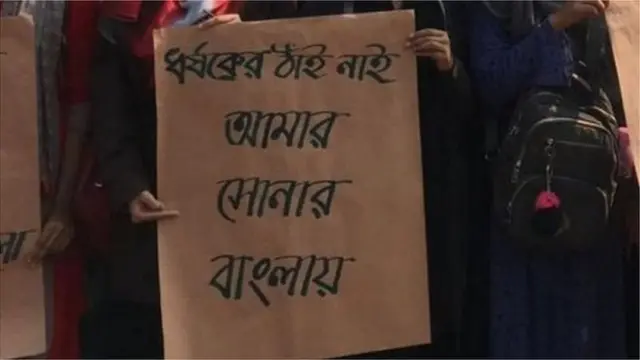 ধর্ষকের ঠাঁই নাই
আমার
সোনার
বাংলায়
লা